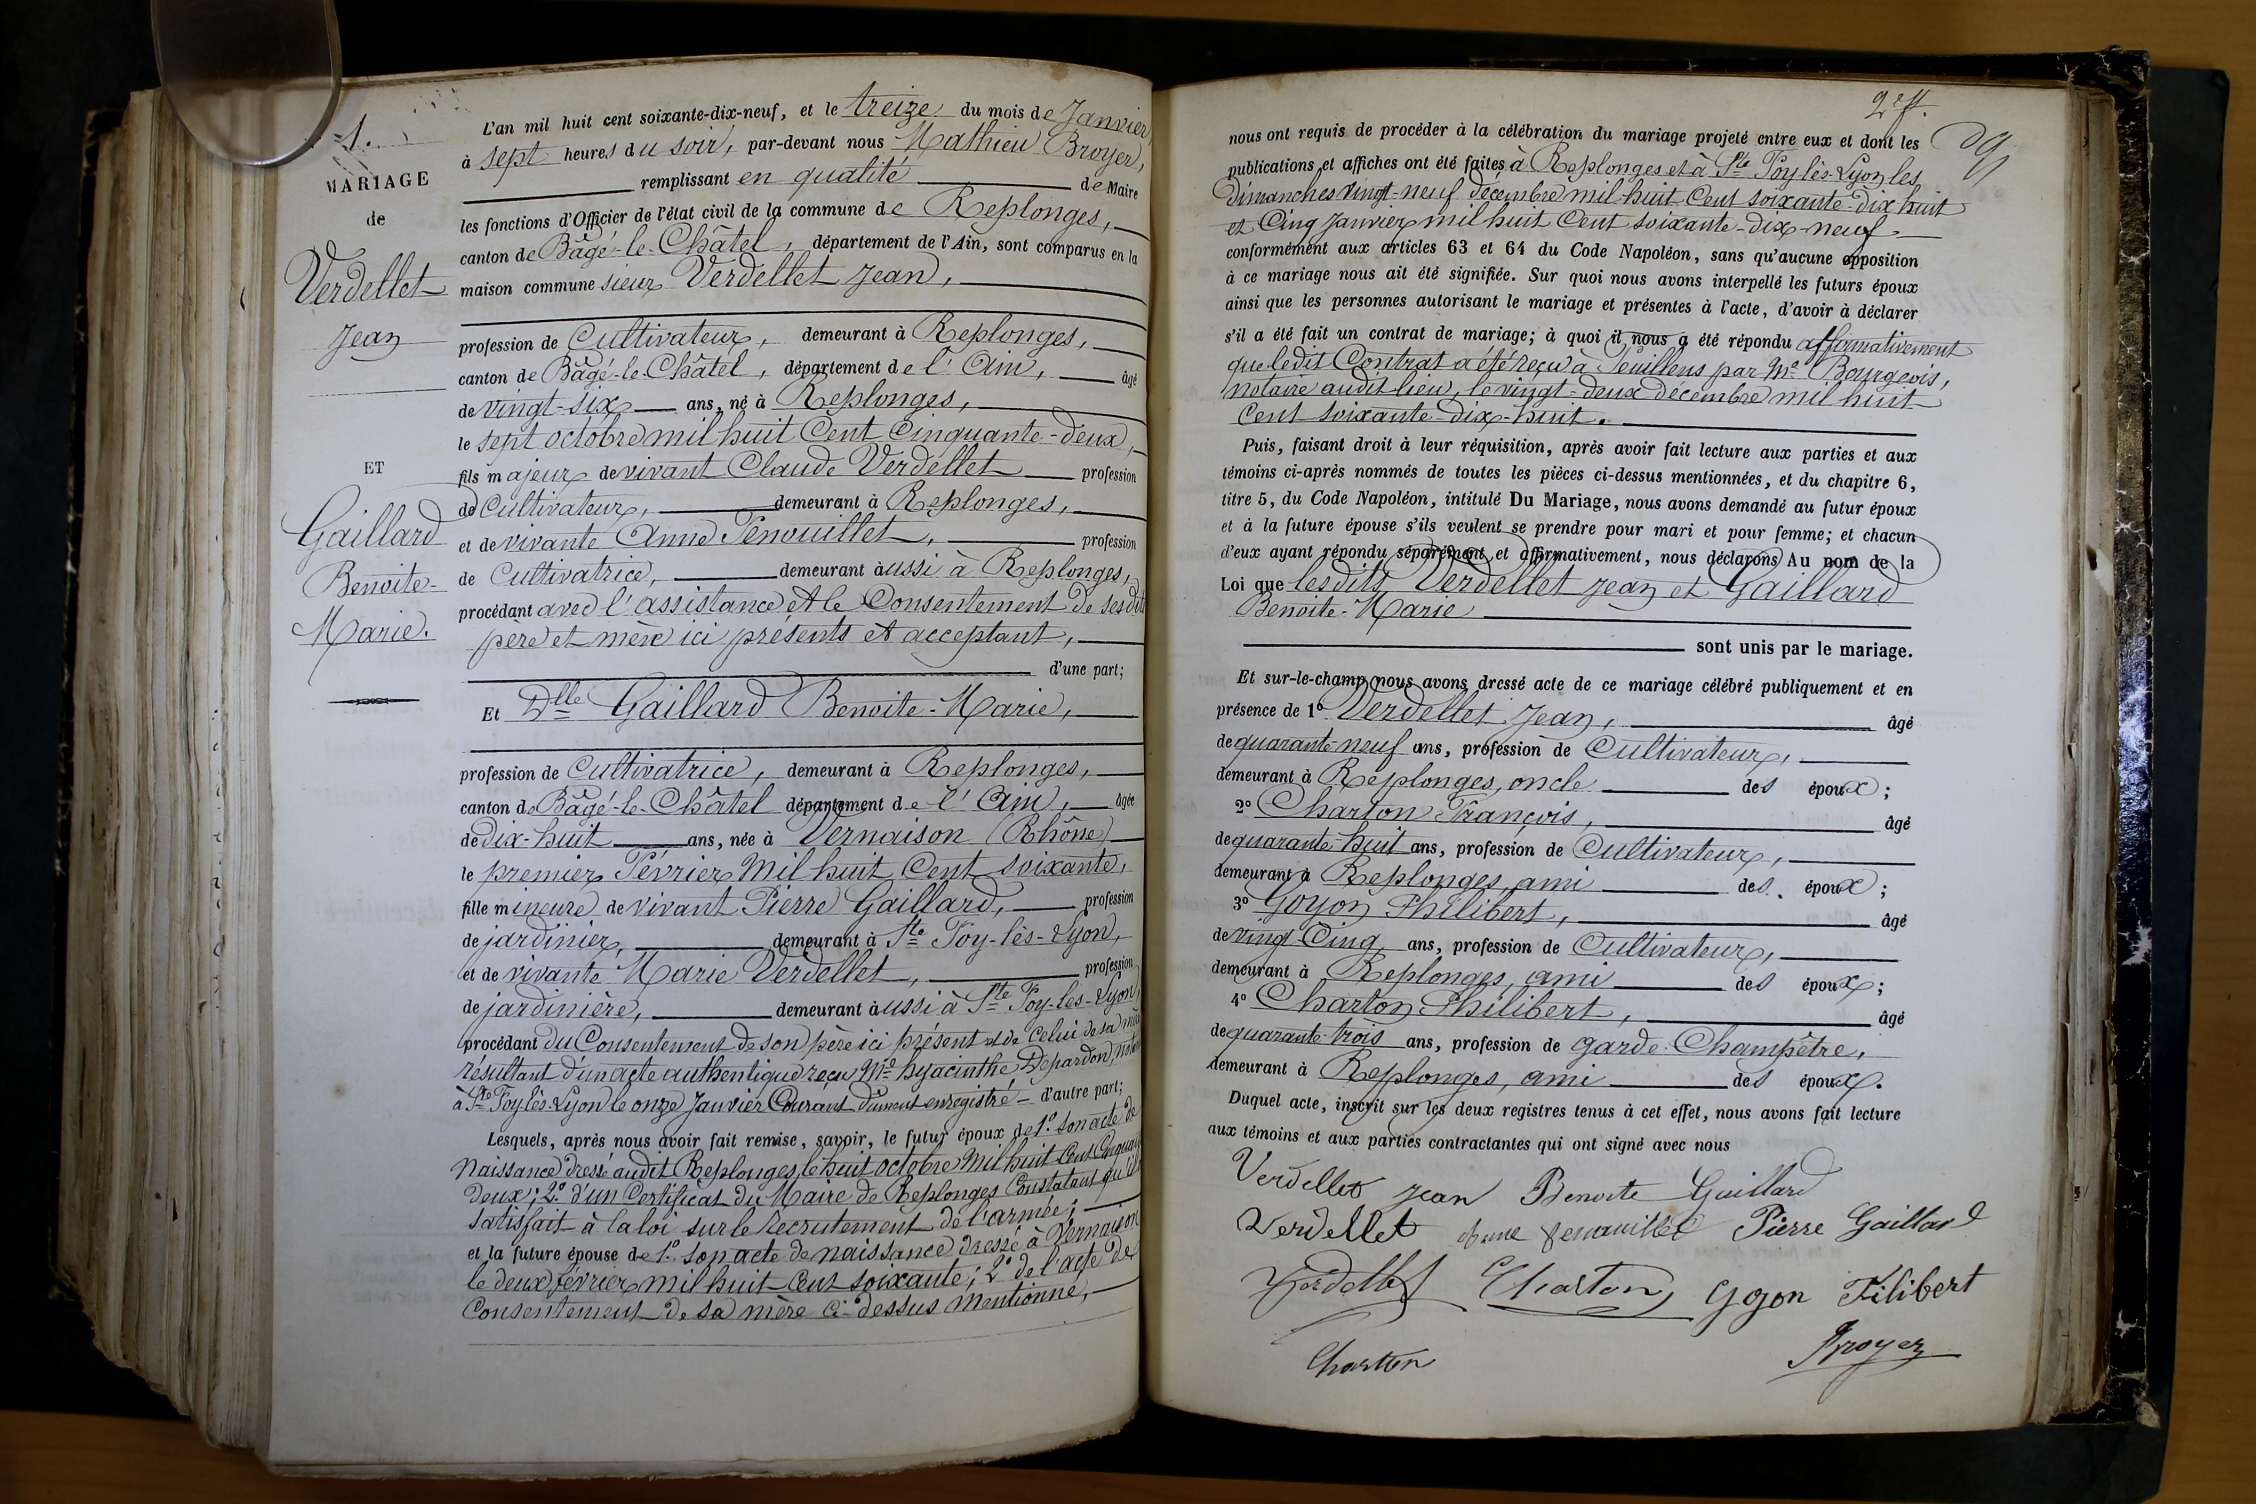 1.
MARIAGE
de
Verdellet
Jean
ET
Gaillard
Benoite-
Marie.
L'an mil huit cent soixante-dix-neuf, et le treize du mois de Janvier,
à sept heures du soir, par-devant nous Mathieu Broyer,
remplissant en qualité de Maire
les fonctions d'Officier de l'état civil de la commune de Replonges,
canton de Bâgé-le-Châtel, département de l'Ain, sont comparus en la
maison commune sieur Verdellet Jean,
profession de Cultivateur, demeurant à Replonges,
canton de Bâgé-le-Châtel, département de l'Ain, âgé
de vingt-six ans, né à Replonges,
le sept octobre mil huit Cent Cinquante-deux,
fils majeur de vivant Claude Verdellet profession
de Cultivateur, demeurant à Replonges,
et de vivante Anne Penouillet, profession
de Cultivatrice, demeurant aussi à Replonges,
procédant avec l'assistance et le Consentement de ses dits
père et mère ici présents et acceptant,
d'une part;
Et Dlle Gaillard Benoite-Marie,
profession de Cultivatrice, demeurant à Replonges,
canton de Bâgé-le-Châtel département de l'Ain, âgée
de dix-huit ans, née à Vernaison (Rhône)
le premier Février Mil huit Cent soixante,
fille mineure de vivant Pierre Gaillard, profession
de jardinier, demeurant à Ste Foy-lès-Lyon,
et de vivante Marie Verdellet, profession
de jardinière, demeurant aussi à Ste Foy-lès-Lyon,
procédant du Consentement de son père ici présent et de Celui de sa mère
résultant d'un acte authentique reçu Me hyacinthe Depardon, notaire
à Ste Foy lès-Lyon le onze Janvier Courant dûment enregistré - d'autre part;
Lesquels, après nous avoir fait remise, savoir, le futur époux de 1º son acte de
Naissance dressé audit Replonges, le huit octobre Mil huit Cent Cinquante
deux; 2º d'un Certificat du Maire de Replonges Constatant qu'il a
satisfait à la loi sur le recrutement de l'armée;
et la future épouse de 1º son acte de naissance dressé à Vernaison
le deux février mil huit Cent soixante; 2º de l'acte de
Consentement de sa mère ci-dessus Mentionné,
nous ont requis de procéder à la célébration du mariage projeté entre eux et dont les
publications et affiches ont été faites à Replonges et à Ste Foy lès-Lyon les
Dimanches vingt-neuf décembre mil-huit Cent soixante-dix huit
et Cinq Janvier mil huit Cent soixante-dix-neuf.
conformément aux articles 63 et 64 du Code Napoléon, sans qu'aucune opposition
à ce mariage nous ait été signifiée. Sur quoi nous avons interpellé les futurs époux
ainsi que les personnes autorisant le mariage et présentes à l'acte, d'avoir à déclarer
s'il a été fait un contrat de mariage; à quoi il nous a été répondu affirmativement
que ledit Contrat a été reçu à Feuillens par Me Bourgeois,
notaire audit lieu, le vingt-deux décembre mil huit
Cent soixante-dix-huit.
Puis, faisant droit à leur réquisition, après avoir fait lecture aux parties et aux
témoins ci-après nommés de toutes les pièces ci-dessus mentionnées, et du chapitre 6,
titre 5, du Code Napoléon, intitulé Du Mariage, nous avons demandé au futur époux
et à la future épouse s'ils veulent se prendre pour mari et pour femme; et chacun
d'eux ayant répondu séparément et affirmativement, nous déclarons Au nom de la
Loi que lesdits Verdellet Jean et Gaillard
Benoite-Marie
sont unis par le mariage.
Et sur-le-champ nous avons dressé acte de ce mariage célébré publiquement et en
présence de 1º Verdellet Jean, âgé
de quarante-neuf ans, profession de Cultivateur,
demeurant à Replonges, oncle des époux;
2º Charton François, âgé
de quarante-huit ans, profession de Cultivateur,
demeurant à Replonges, ami des époux;
3º Goyon Philibert, âgé
de vingt-Cinq ans, profession de Cultivateur,
demeurant à Replonges, ami des époux;
4º Charton Philibert, âgé
de quarante-trois ans, profession de garde-Champêtre,
demeurant à Replonges, ami des époux.
Duquel acte, inscrit sur les deux registres tenus à cet effet, nous avons fait lecture
aux témoins et aux parties contractantes qui ont signé avec nous
Verdellet Jean Benoite Gaillard
Verdellet Anne Penouillet Pierre Gaillard
Verdellet Charton Goyon Filibert
Charton Broyer